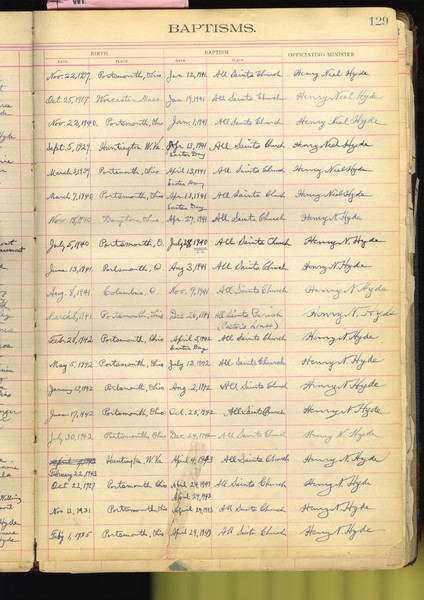 129
BAPTISMS.
BIRTH BAPTISM OFFICIATING MINISTER
DATE PLACE DATE PLACE
Nov. 22, 1937. Portsmouth, Ohio Jan. 12, 1941 All Saints Church Henry Neil Hyde
Oct 25, 1917 Worcester Mass Jan 19, 1941 All Saints Church Henry Neil Hyde
Nov. 22, 1940. Portsmouth, Ohio Jan. 1, 1941 All Saints Church Henry Neil Hyde
Sept. 5, 1929 Huntington W. Va. Apr. 13, 1941 All Saints Church Henry Neil Hyde
Easter Day
March 3, 1939 Portsmouth, Ohio April 13, 1941 All Saints Church Henry Neil Hyde
Easter Day
March 7, 1940 Portsmouth, Ohio Apr. 13, 1941 All Saints Church Henry Neil Hyde
Easter Day
Nov. 18, 1940 Dayton, Ohio Apr. 27, 1941 All Saints Church Henry N. Hyde
July 5, 1940 Portsmouth, O. July 28, 1940 All Saints Church Henry N. Hyde
June 13, 1941. Portsmouth, O. Aug 3, 1941 All Saints Church Henry N. Hyde
Aug. 8, 1941 Columbus, O. Nov. 9, 1941 All Saints Church Henry N. Hyde
March 8, 1941 Portsmouth, Ohio Dec 26, 1941 All Saints Parish Henry N. Hyde
Feb. 28, 1942 Portsmouth, Ohio April 5, 1942 All Saints Church Henry N. Hyde
Easter Day
May 5, 1942 Portsmouth, Ohio July 12, 1942 All Saints Church Henry N. Hyde
January 13, 1942 Portsmouth, Ohio Aug. 2, 1942 All Saints Church Henry N. Hyde
June 17, 1942 Portsmouth, Ohio Oct. 25, 1942 All Saints Church Henry N. Hyde
July 30, 1942 Portsmouth, Ohio Dec 24, 1942 All Saints Church Henry N. Hyde
Huntington W. Va. April 4, 1943 All Saints Church Henry N. Hyde
February 22, 1943
Oct 22, 1927 Portsmouth Ohio April 24, 1943 All Saints Church Henry N. Hyde
April 24, 1943
Nov. 13, 1931 Portsmouth Ohio April 24, 1943 All Saints Church Henry N. Hyde
Feb'y 1, 1935 Portsmouth, Ohio Apr 24, 1943 All Saints Church Henry N. Hyde